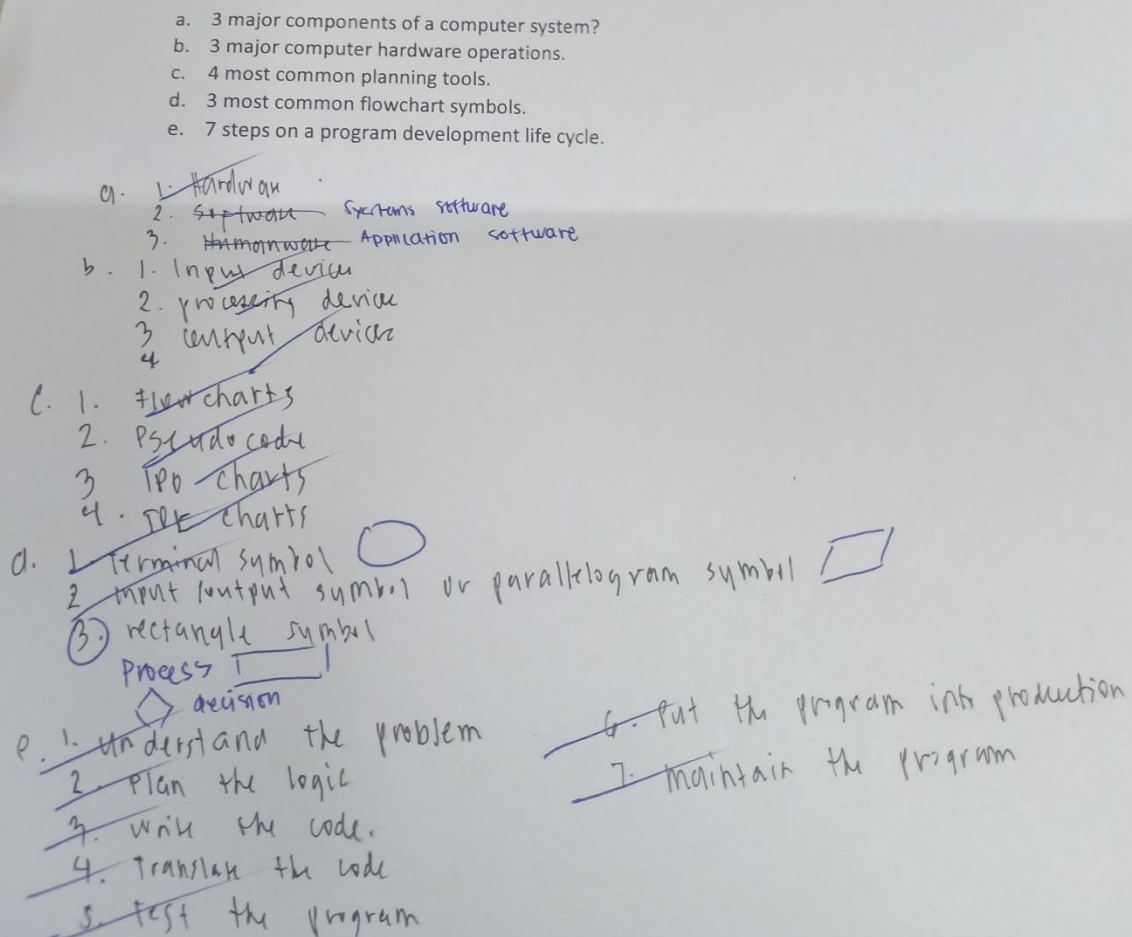 a. 3 major components of a computer system?
b. 3 major computer hardware operations.
c. 4 most common planning tools.
d. 3 most common flowchart symbols.
e. 7 steps on a program development life cycle.
a. 1. Hardware
2. Software Systems software
3. Humanware Application software
b. 1. Input devices
2. processing devices
3 output devices
4
C. 1. Flowcharts
2. Pseudocode
3 IPO charts
4. charts
d. 1 Terminal symbol
2 input/output symbol or parallelogram symbol
3. rectangle symbol
Process
decision
e. 1. Understand the problem
2. Plan the logic
3. Write the code.
4. Translate the code
5. Test the program
6. Put the program into production
7. maintain the program